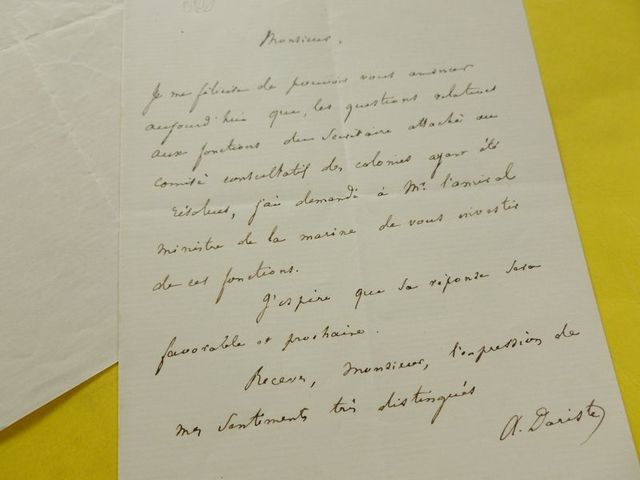 Monsieur,
Je me félicite de pouvoir vous annoncer
aujourd'hui que, les questions relatives
aux fonctions du Secrétaire attaché au
comité consultatif des colonies ayant été
résolues, j'ai demandé à Mr. l'amiral
ministre de la marine de vous investir
de ces fonctions.
J'espère que sa réponse sera
favorable et prochaine.
Recevez, Monsieur, l'expression de
mes sentiments très distingués
A. Dariste